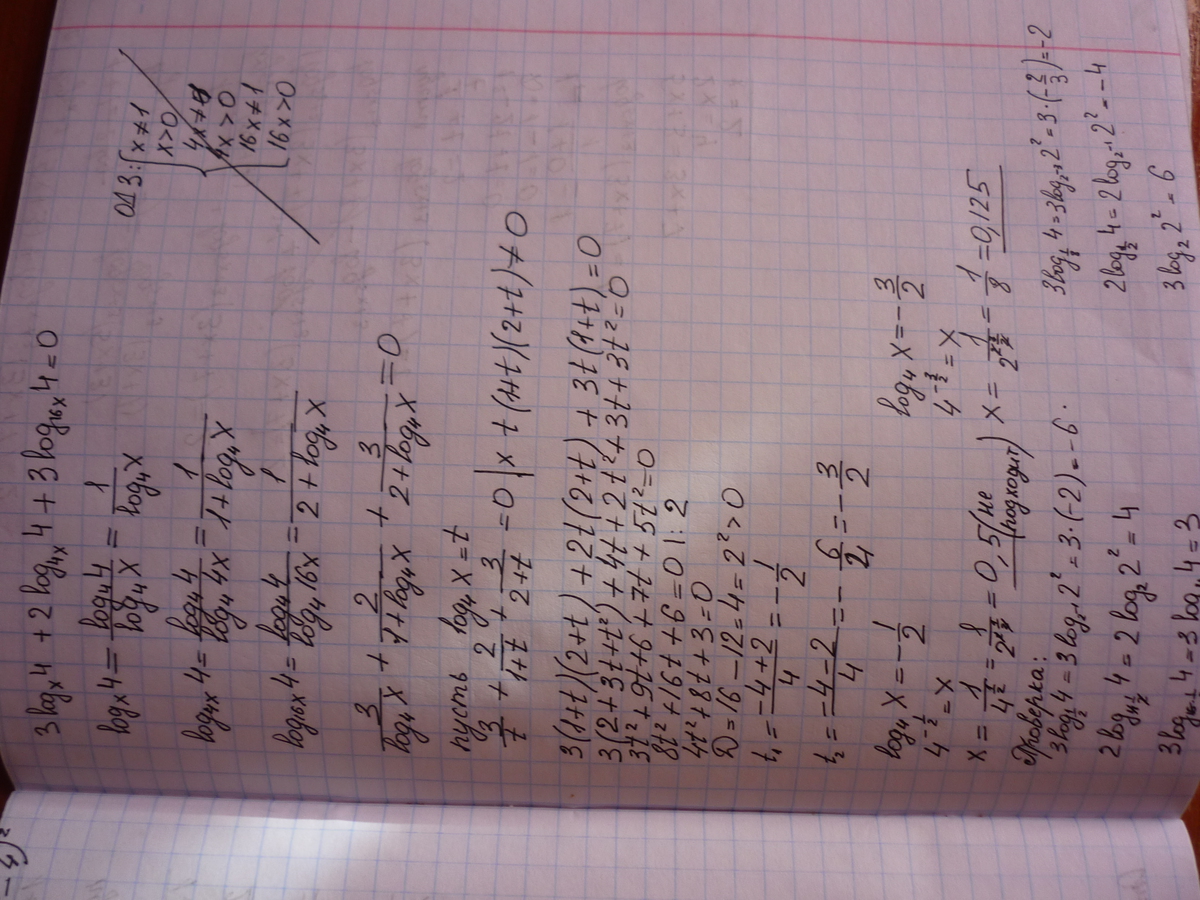 3 log_x 4 + 2 log_{4x} 4 + 3 log_{16x} 4 = 0
ОДЗ: { x ≠ 1
x > 0
4x > 0
16x ≠ 1
16x > 0
log_x 4 = \frac{log_4 4}{log_4 x} = \frac{1}{log_4 x}
log_{4x} 4 = \frac{log_4 4}{log_4 4x} = \frac{1}{1 + log_4 x}
log_{16x} 4 = \frac{log_4 4}{log_4 16x} = \frac{1}{2 + log_4 x}
\frac{3}{log_4 x} + \frac{2}{1 + log_4 x} + \frac{3}{2 + log_4 x} = 0
пусть log_4 x = t
\frac{3}{t} + \frac{2}{1+t} + \frac{3}{2+t} = 0 | × t (1+t)(2+t) ≠ 0
3(1+t)(2+t) + 2t(2+t) + 3t(1+t) = 0
3(2+3t+t²) + 4t + 2t² + 3t + 3t² = 0
3t² + 9t + 6 + 7t + 5t² = 0
8t² + 16t + 6 = 0 | : 2
4t² + 8t + 3 = 0
D = 16 - 12 = 4 = 2² > 0
t_1 = \frac{-4+2}{4} = -\frac{1}{2}
t_2 = \frac{-4-2}{4} = -\frac{6}{4} = -\frac{3}{2}
log_4 x = -\frac{1}{2} log_4 x = -\frac{3}{2}
4^{-\frac{1}{2}} = x 4^{-\frac{3}{2}} = x
x = \frac{1}{4^{\frac{1}{2}}} = \frac{1}{2^{2·\frac{1}{2}}} = 0,5 (не подходит) x = \frac{1}{2^{2·\frac{3}{2}}} = \frac{1}{8} = 0,125
Проверка:
3 log_{\frac{1}{2}} 4 = 3 log_{2^{-1}} 2² = 3 · (-2) = -6. 3 log_{\frac{1}{8}} 4 = 3 log_{2^{-3}} 2² = 3 · (-\frac{2}{3}) = -2
2 log_{4·\frac{1}{2}} 4 = 2 log_2 2² = 4 2 log_{\frac{1}{2}} 4 = 2 log_{2^{-1}} 2² = -4
4 = 3 log 4 = 3 3 log_2 2² = 6